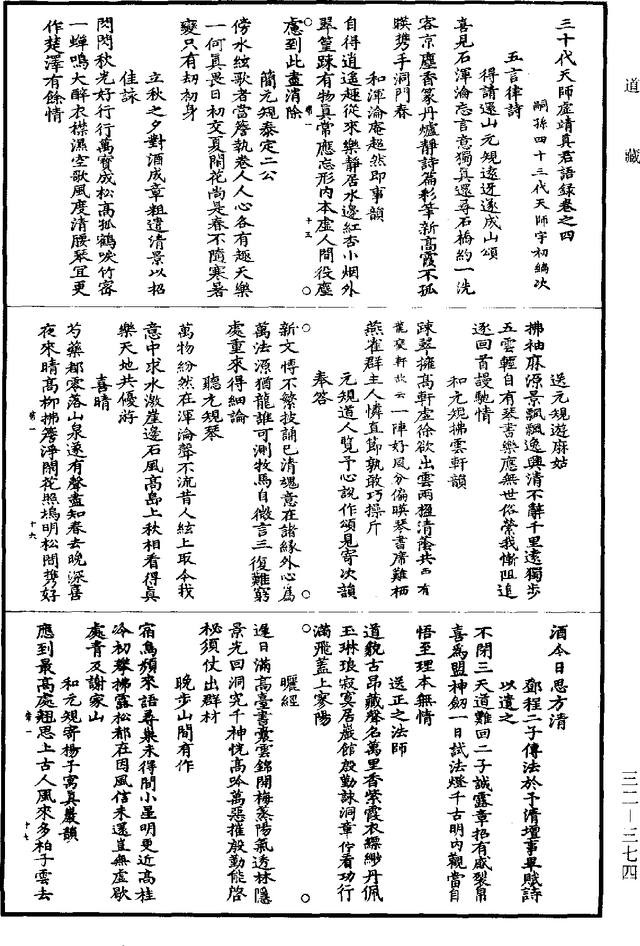 道藏
三十代天師虛靖真君語錄卷之四
嗣孫四十三代天師宇初編次
五言律詩
得請還山元規遠迓遂成山頌
喜見石渾淪忘言意獨真還尋石橋約一洗
客京塵香篆丹爐靜詩篇彩筆新高霞不孤
暎携手洞門春
和渾淪庵超然即事韻
自得逍遙趣從來樂靜居水邊紅杏小烟外
翠篁踈有物真常應忘形內本虛人間役塵
慮到此盡消除
簡元規泰定二公
傍水絃歌者當簷執卷人人心各有趣天樂
一何真畏日初交夏閑花尚是春不隨寒暑
變只有刼初身
立秋之夕對酒成章粗遣清景以招
佳詠
閃閃秋光好行行萬寶成松高孤鶴唳竹密
一蟬鳴大醉衣襟濕空歌風度清腰琴宜更
作楚澤有餘情
十五
送元規遊麻姑
拂袖麻源景飄飄逸興清不辭千里遠獨步
五雲輕自有琴書樂應無世俗縈我慚阻追
逐回首謾馳情
和元規拂雲軒韻
踈翠擁高軒虛徐欲出雲兩楹清蔭共西有
龍交軒故云一陣好風分偏暎琴書席難栖
燕雀群主人憐直節孰敢巧操斤
元規道人覽予心說作頌見寄次韻
奉答
新文博不繁披誦已清魂意在諸緣外心為
萬法源猶龍誰可測牧馬自微言三復難窮
處重來得細論
聽元規琴
萬物紛然在渾淪聲不流昔人絃上取令我
意中求水激崖邊石風高島上秋相看得真
樂天地共優游
喜晴
芍藥都零落山泉遂有聲盡知春去晚深喜
夜來晴高柳拂簷淨閑花照塢明松間携好
十六
酒今日思方清
鄧程二子傳法於予清壇事畢賦詩
以遺之
不閉三天道難回二子誠露章招有感裂帛
喜為盟神劒一日試法燈千古明內觀當自
悟至理本無情
送正之法師
道貌古昂藏聲名萬里香紫霞衣縹緲丹佩
玉琳琅寂寞居巖館殷勤誄洞章佇看功行
滿飛蓋上寥陽
曬經
逢日滿高臺書囊雲錦開梅蒸陽氣透林隱
景光回洞究千神恍高吟萬惡摧殷勤能啓
祕須仗出群材
晚步山間有作
宿鳥頻來語尋巢未得間小星明更近高桂
冷初攀拂露松都在因風信未還豈無虛歇
處青及謝家山
和元規寄楊子寓真巖韻
應到最高處趄思上古人風來多柏子雲去
十七
三二—三七四